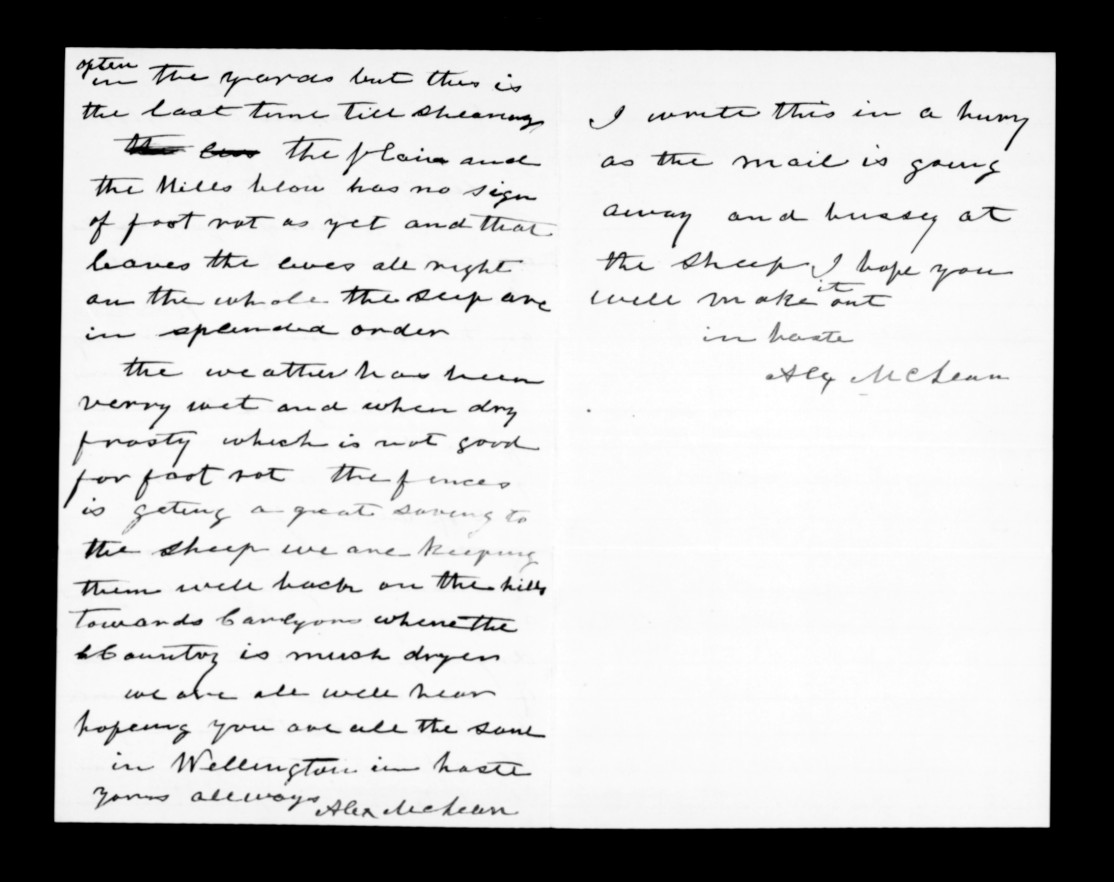 often
in the yards but this is
the last time till shearing
the the plain and
the Hills blow has no sign
of foot rot as yet and that
leaves the ewes all right
on the whole the seep are
in splended order
the weather has been
verry wet and when dry
frosty which is not good
for foot rot the fences
is geting a great saving to
the sheep we are keeping
them well back on the hills
towards Carlyons where the
Country is much dryer
we are all well hear
hopeing you are all the same
in Wellington in haste
yours allways Alex McLean
I wrete this in a hury
as the mail is going
away and bussey at
the sheep I hope you
will make it out
in haste
Alex McLean